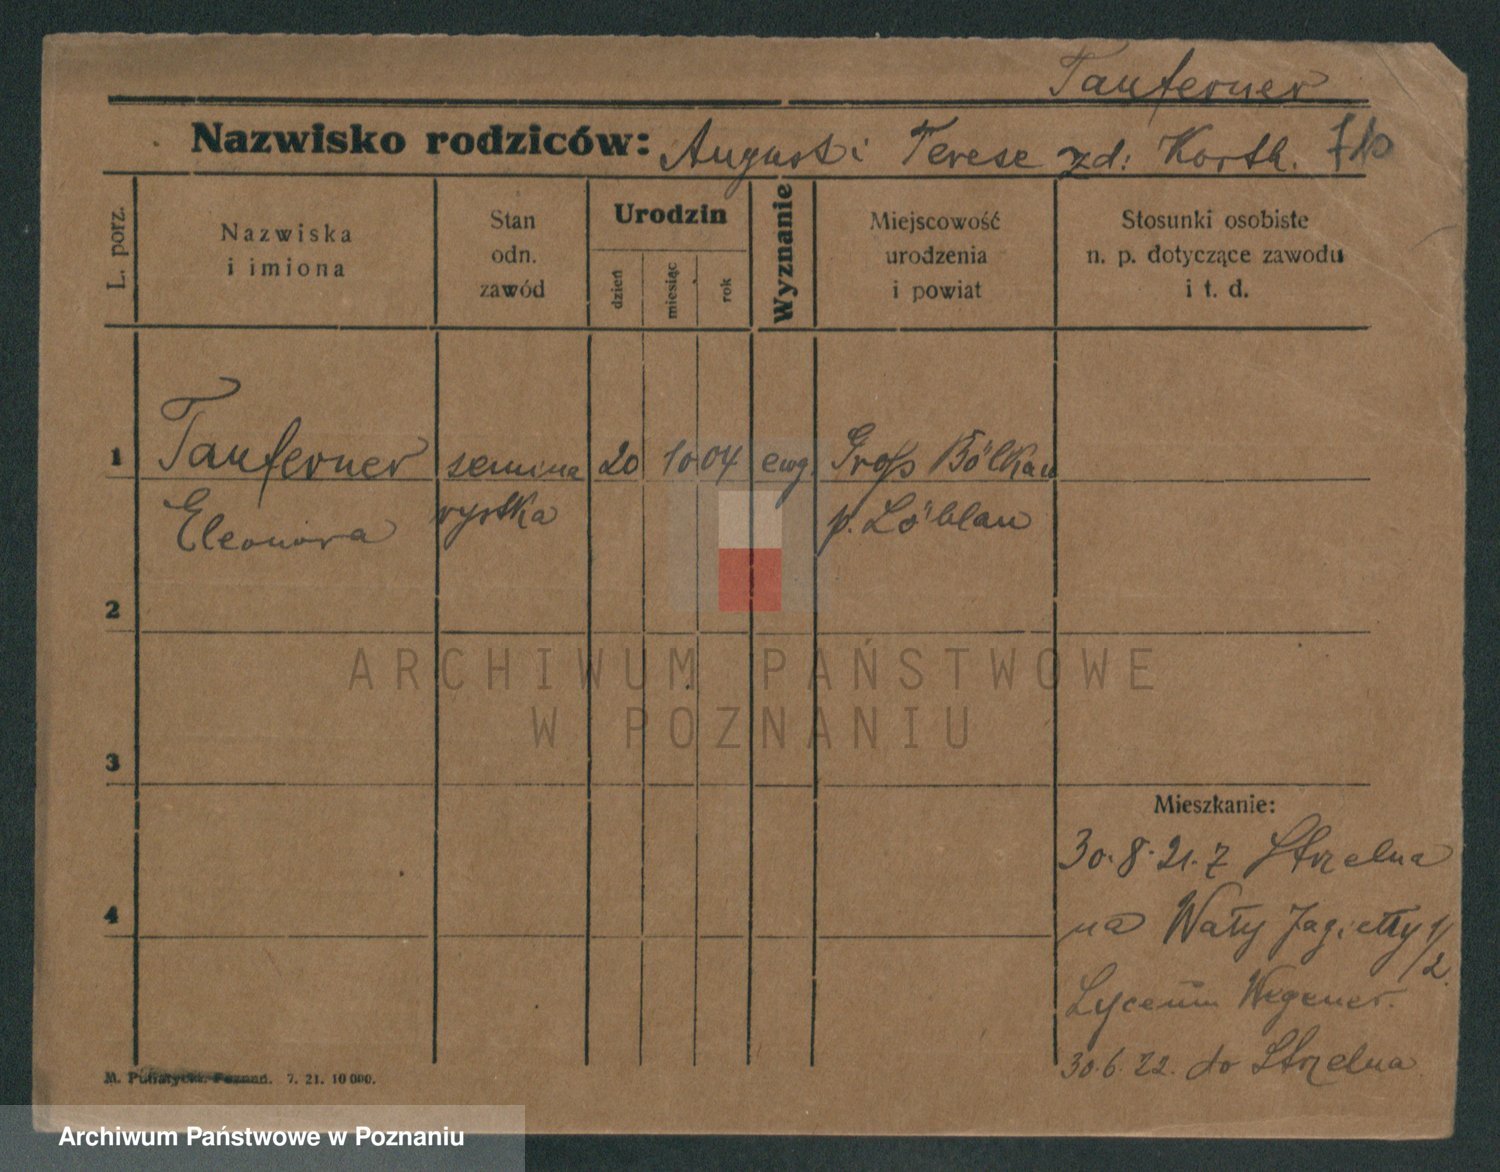 Tauferner
Nazwisko rodziców: August i Terese zd: Korth.
L. porz.
Nazwiska
i imiona
Stan
odn.
zawód
Urodzin
dzień
miesiąc
rok
Wyznanie
Miejscowość
urodzenia
i powiat
Stosunki osobiste
n. p. dotyczące zawodu
i t. d.
1 Tauferner semina 20 10 04 ewg. Groß Bölkau
Eleonora rystka p. Löblau
2
ARCHIWUM PAŃSTWOWE
W POZNANIU
3
Mieszkanie:
30.8.21. z Strzelna
4
na Wały Jagiełły 1/2
Lyceum Wegener.
30.6.22. do Strzelna
Poznań. 7. 21. 10 000.
Archiwum Państwowe w Poznaniu